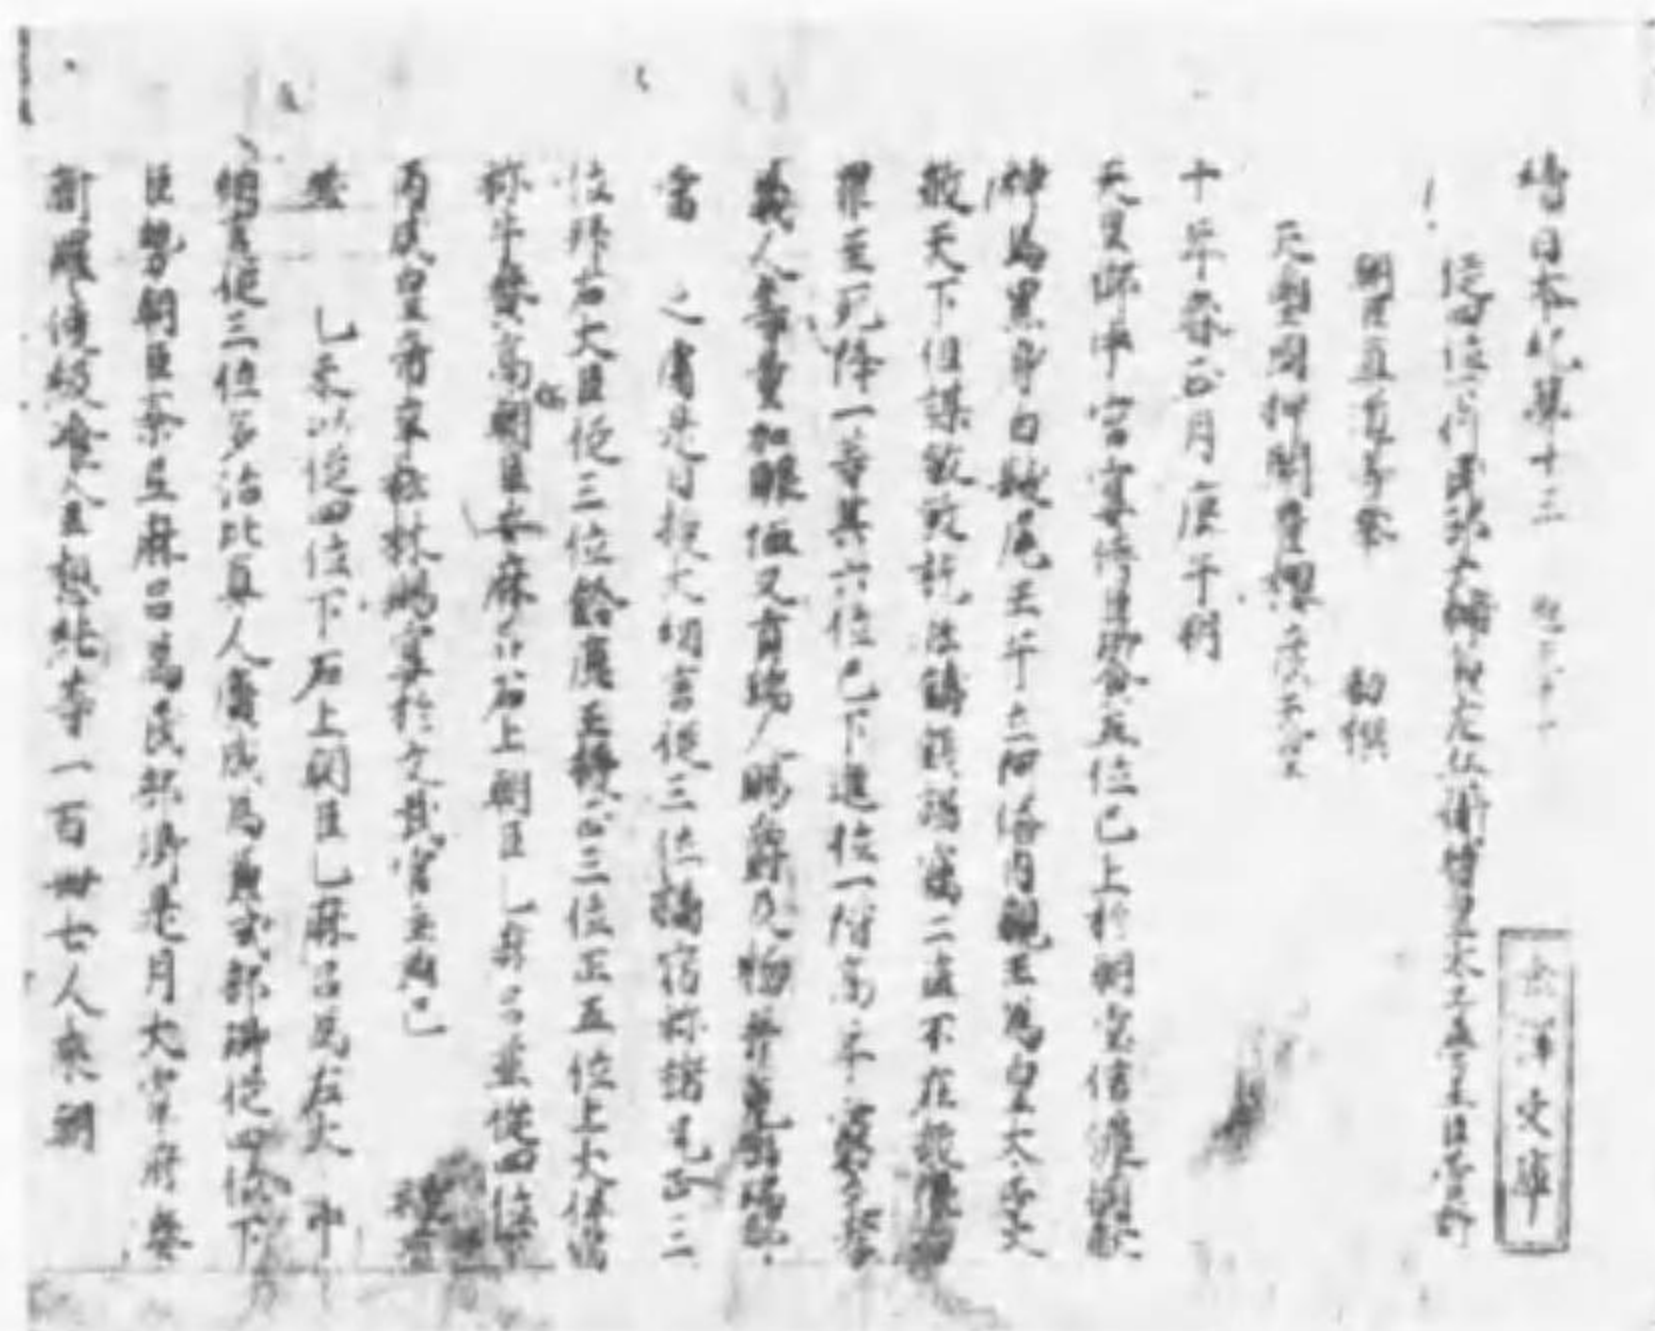 續日本紀第十三
從四位下行民部大輔兼左兵衛督皇太子學士臣菅野
朝臣真道等奉 勅撰
天璽國押開豐櫻彦天皇
十年春正月庚午朔
天皇御中宮宴侍臣饗五位已上於朝堂信濃國獻
神馬黒身白髪尾壬午立阿倍内親王為皇太子大
赦天下但謀殺殺訖私鑄錢強竊二盗不在赦限
罪至死降一等其六位已下進位一階高年窮乏孝
義人等量加賑恤又有瑞人賜爵及物并免出瑞郡
當 之庸是日授大納言從三位橘宿祢諸兄正三
位拜右大臣從三位鈴鹿王授正三位正五位上大伴宿
祢牛養高朝臣安麻呂石上朝臣乙麻呂並從四位下
丙戌皇帝幸松林賜宴於文武官主典已
差 乙未以從四位下石上朝臣乙麻呂為左大 中
納言從三位多治比真人廣成為兼式部卿從四位下
巨勢朝臣奈弖麻呂為民部卿是月大宰府奏
新羅使級飡金想純等一百卌七人來朝
東洋文庫